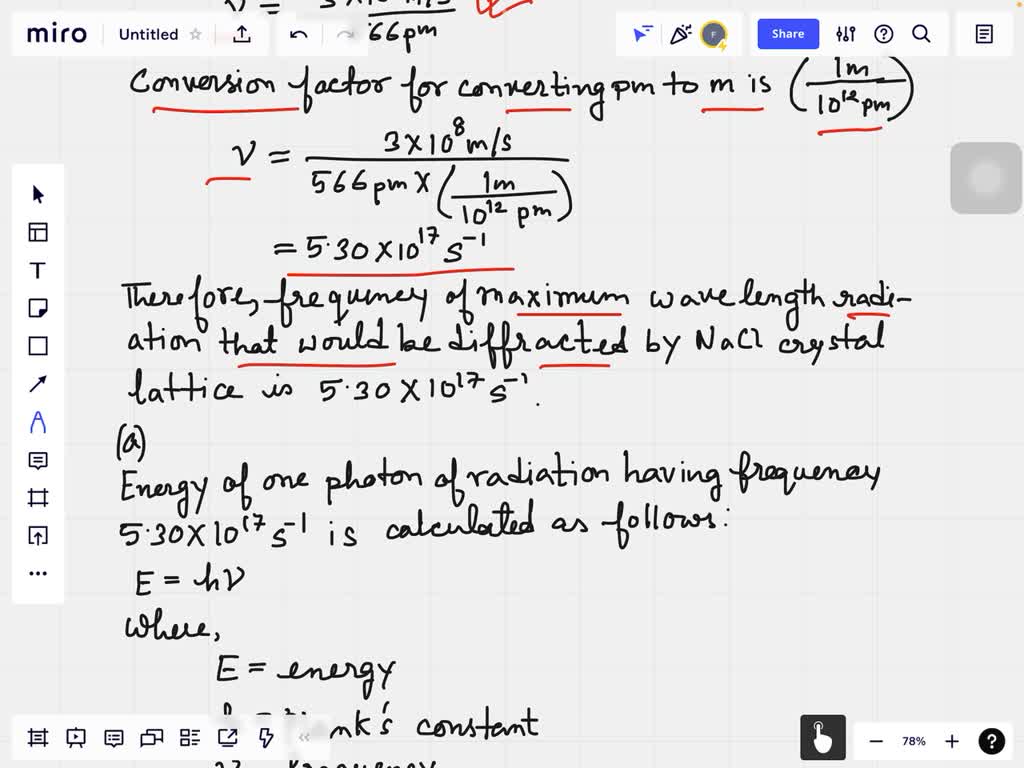 miro Untitled Share
66pm
Conversion factor for converting pm to m is (1m/10¹² pm)
ν = 3×10⁸ m/s / 566 pm × (1m/10¹² pm)
= 5.30 ×10¹⁷ s⁻¹
Therefore, frequency of maximum wavelength radi-
ation that would be diffracted by NaCl crystal
lattice is 5.30 × 10¹⁷ s⁻¹.
(a)
Energy of one photon of radiation having frequency
5.30×10¹⁷ s⁻¹ is calculated as follows:
E = hν
Where,
E = energy
constant
78%